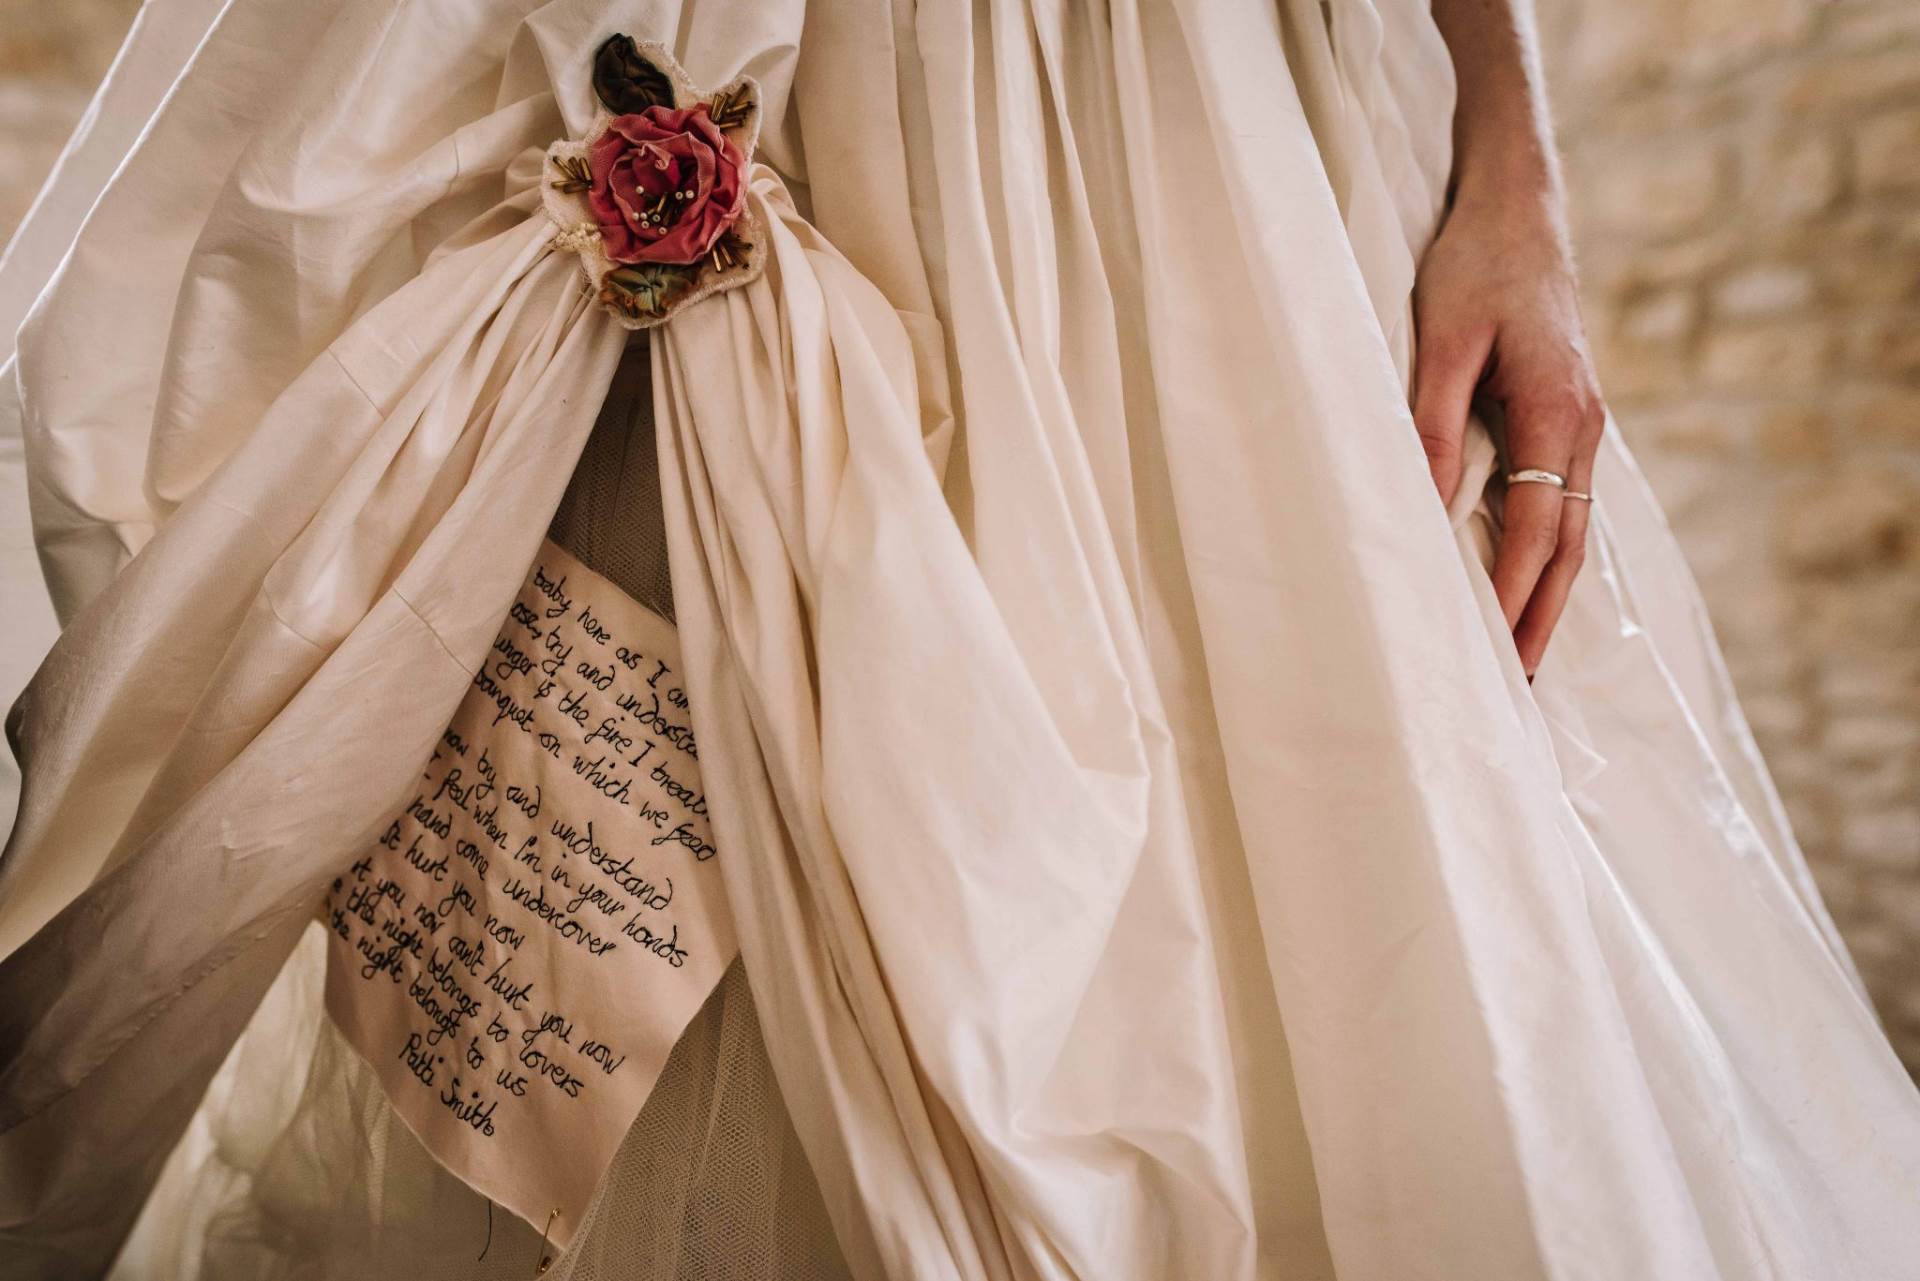 baby here as I am
ose, try and understa
unger is the fire I breath
banquet on which we feed
now try and understand
I feel when I'm in your hands
hand come undercover
't hurt you now
't you now can't hurt you now
e the night belongs to lovers
e the night belongs to us
Patti Smith